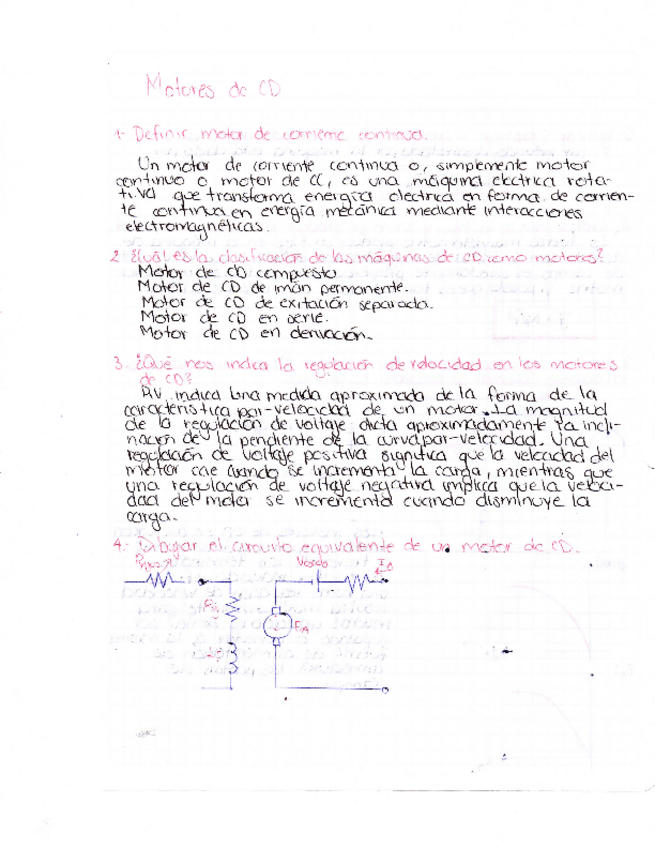 Motores de CD
1- Definir motor de corriente continua.
Un motor de corriente continua o, simplemente motor
continuo o motor de CC, es una máquina electrica rota-
tiva que transforma energía electrica en forma de corrien-
te continua en energía mecánica mediante interacciones
electromagnéticas.
2 ¿Cuál es la clasificación de las máquinas de CD como motores?
Motor de CD compuesto
Motor de CD de imán permanente.
Motor de CD de exitación separada.
Motor de CD en serie.
Motor de CD en derivación.
3. ¿Qué nos indica la regulación de velocidad en los motores
de CD?
RV, indica una medida aproximada de la forma de la
característica par-velocidad de un motor. La magnitud
de la regulación de voltaje dicta aproximadamente la incli-
nación de la pendiente de la curva par-velocidad. Una
regulación de voltaje positiva significa que la velocidad del
motor cae cuando se incrementa la carga, mientras que
una regulación de voltaje negativa implica que la veloci-
dad del motor se incrementa cuando disminuye la
carga.
4.- Dibujar el circuito equivalente de un motor de CD.
EA